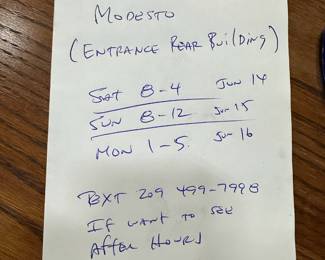 MODESTO
(ENTRANCE REAR BUILDING)
SAT 8-4 JUN 14
SUN 8-12 JUN 15
MON 1-5 JUN 16
TEXT 209 499-7998
IF WANT TO SEE
AFTER HOURS